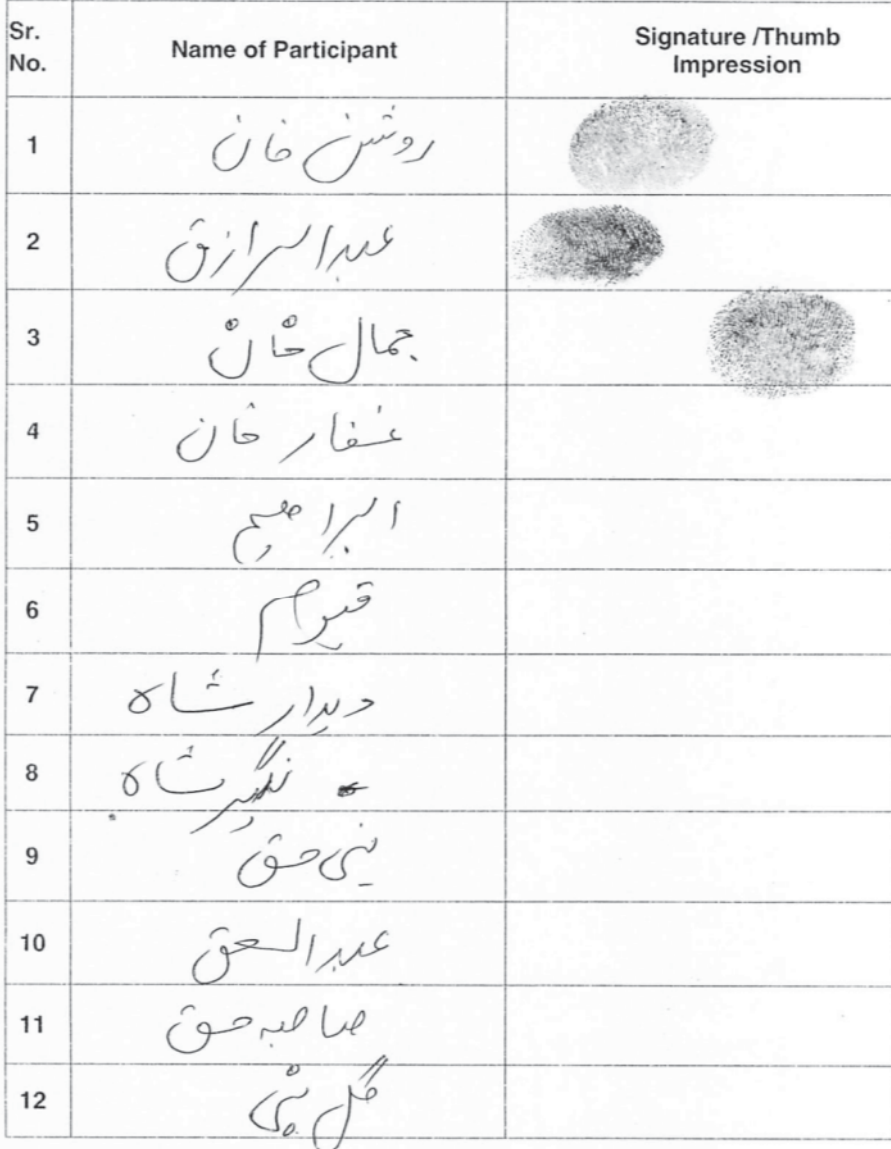 Sr. No.
Name of Participant
Signature /Thumb Impression
1 روشن خان
2 عبدالرازق
3 جمال خان
4 غفار خان
5 ابراھیم
6
7 دیدار شاہ
8 شاہ
9 حق
10 عبدالحق
11 حق
12 گل